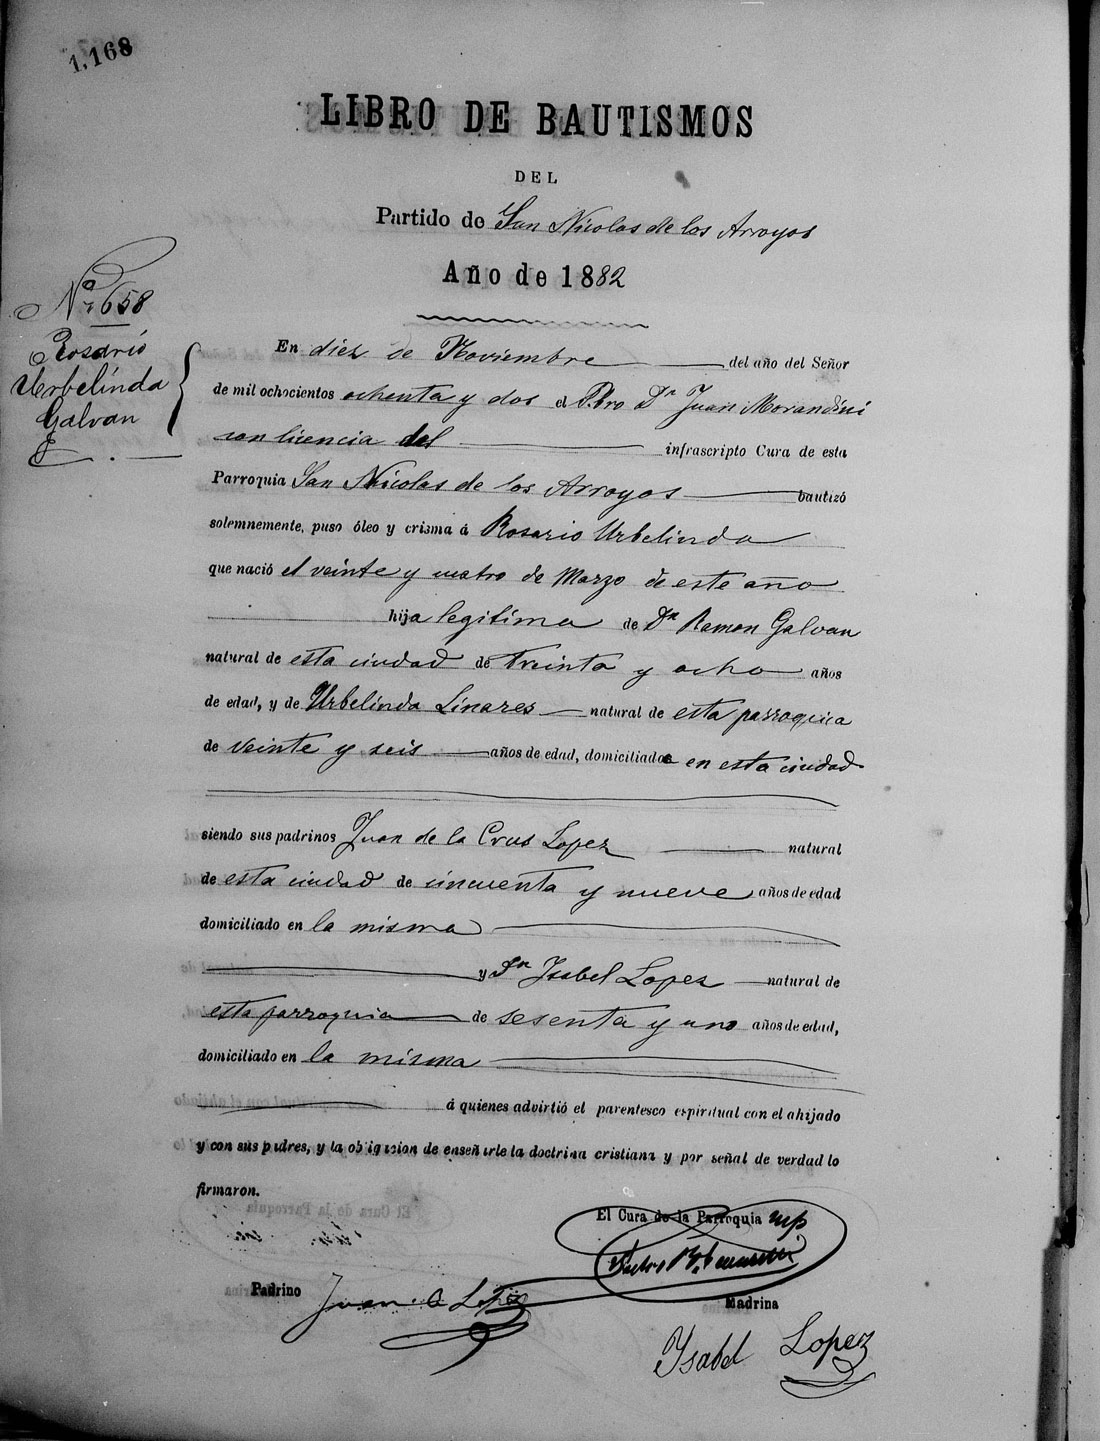 1,168
LIBRO DE BAUTISMOS
DEL
Partido de San Nicolas de los Arroyos
Año de 1882
Nº 658
Rosario
Urbelinda
Galvan
En diez de Noviembre del año del Señor
de mil ochocientos ochenta y dos el Pbro Dn Juan Morandini
con licencia del infrascripto Cura de esta
Parroquia San Nicolas de los Arroyos bautizó
solemnemente, puso óleo y crisma á Rosario Urbelinda
que nació el veinte y cuatro de Marzo de este año
hija legitima de Dn Ramon Galvan
natural de esta ciudad de treinta y ocho años
de edad, y de Urbelinda Linares natural de esta parroquia
de veinte y seis años de edad, domiciliados en esta ciudad
siendo sus padrinos Juan de la Crus Lopez natural
de esta ciudad de cincuenta y nueve años de edad
domiciliado en la misma
y Dn Isabel Lopez natural de
esta parroquia de sesenta y uno años de edad,
domiciliado en la misma
á quienes advirtió el parentesco espiritual con el ahijado
y con sus padres, y la obligacion de enseñarle la doctrina cristiana y por señal de verdad lo
firmaron.
El Cura de la Parroquia
Padrino Juan Lopez
Madrina
Ysabel Lopez